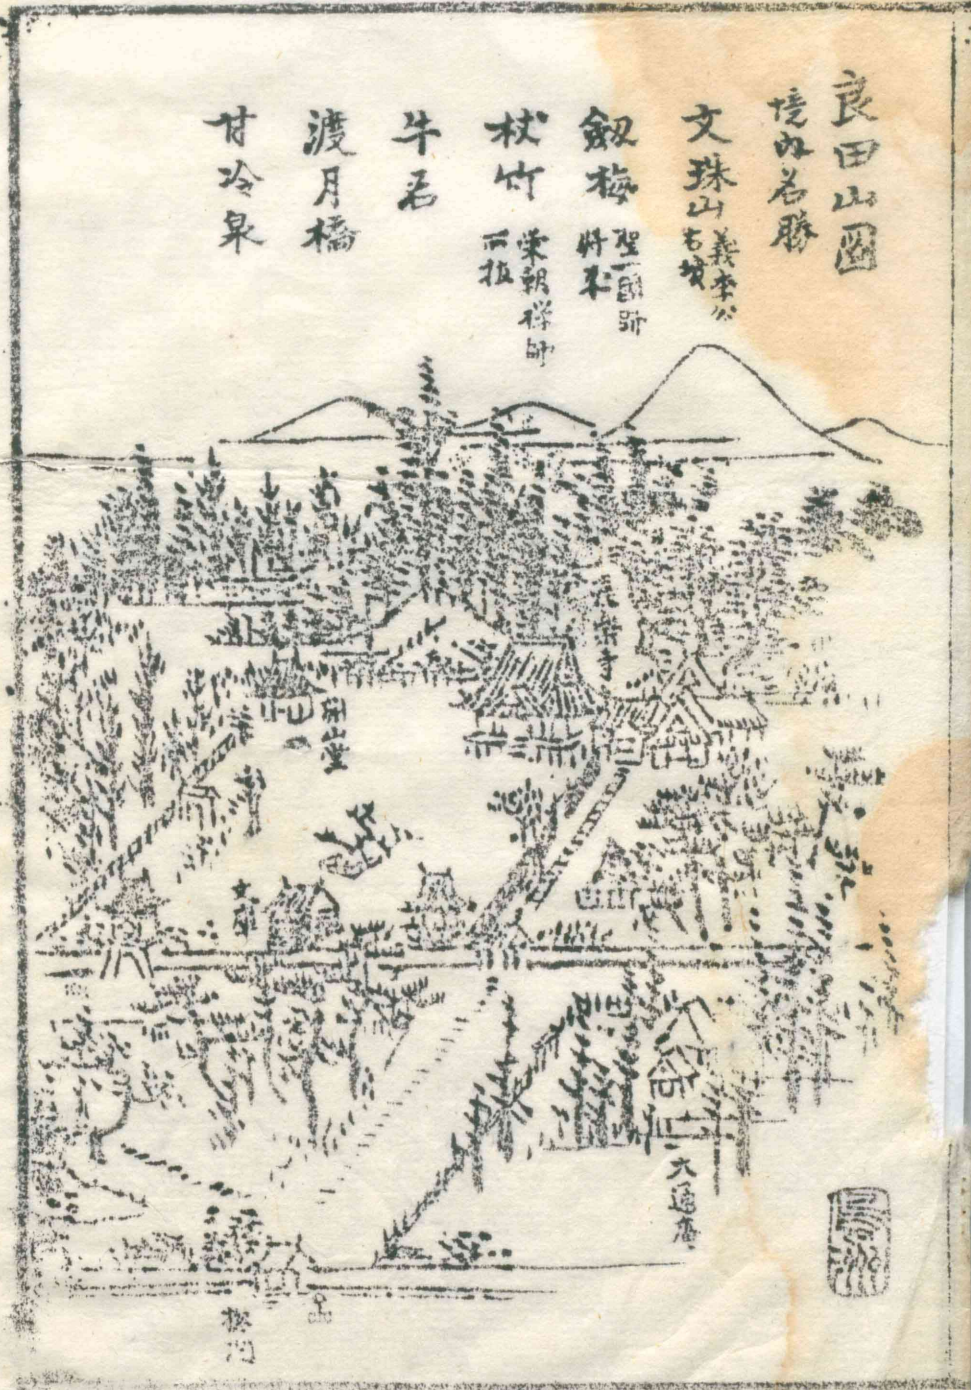 良田山圖
境内名勝
文珠山 義季公古墳
劔梅 聖一國師將来
杖竹 栄朝禅師所植
牛石
渡月橋
甘冷泉
長楽寺
開山堂
文庫
大通庵
総門